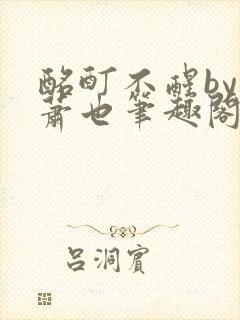 酩酊不醒by
萧也笔趣阁
吕洞賓